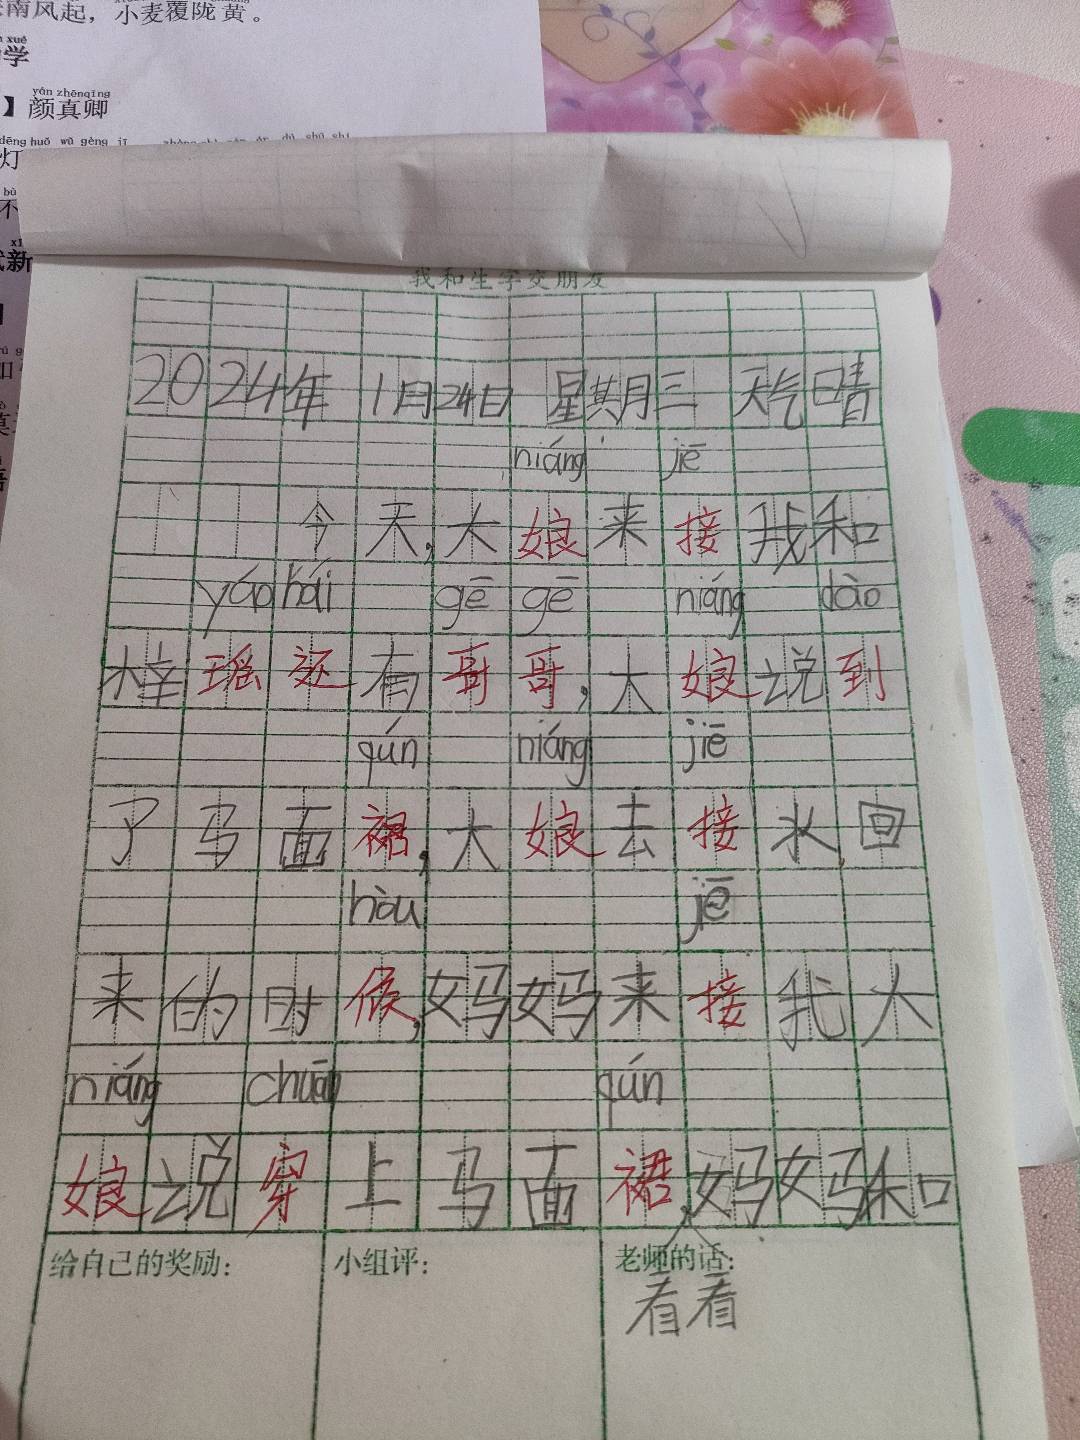 南风起，小麦覆陇黄。
xué
学
yán zhēnqīng
】颜真卿
dēng huǒ wǔ gēng jī
灯
bù
不
新
我和生字交朋友
2024年 1月24日 星期三 天气晴
niáng jiē
今天，大娘来接我和
yáo hái gē gē niáng dào
梓瑶还有哥哥，大娘说到
qún niáng jiē
了马面裙，大娘去接水，回
hòu jiē
来的时候，妈妈来接我大
niáng chuān qún
娘说穿上马面裙，妈妈和
给自己的奖励： 小组评： 老师的话：
看看